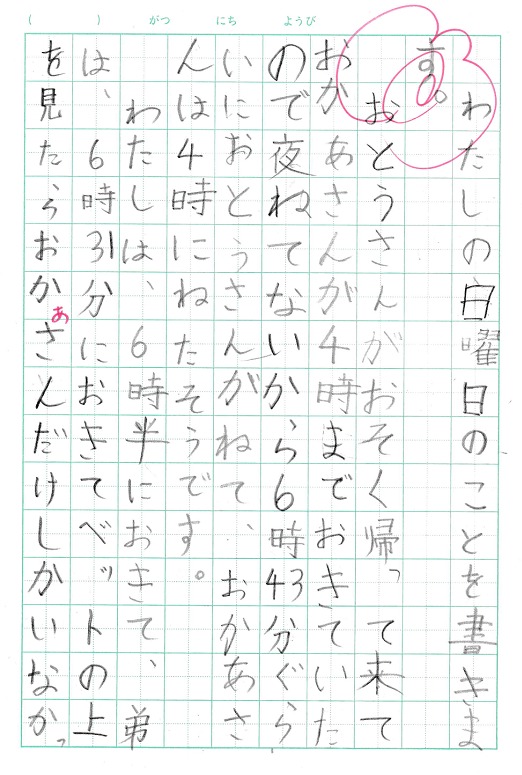 （　　）がつ　にち　ようび
わたしの日曜日のことを書きま
す。
おとうさんがおそく帰って来て
おかあさんが4時までおきていた
ので夜ねてないから6時43分ぐら
いにおとうさんがねて、おかあさ
んは4時にねたそうです。
わたしは、6時半におきて、弟
は、6時31分におきてベットの上
を見たらおかあさんだけしかいなかっ